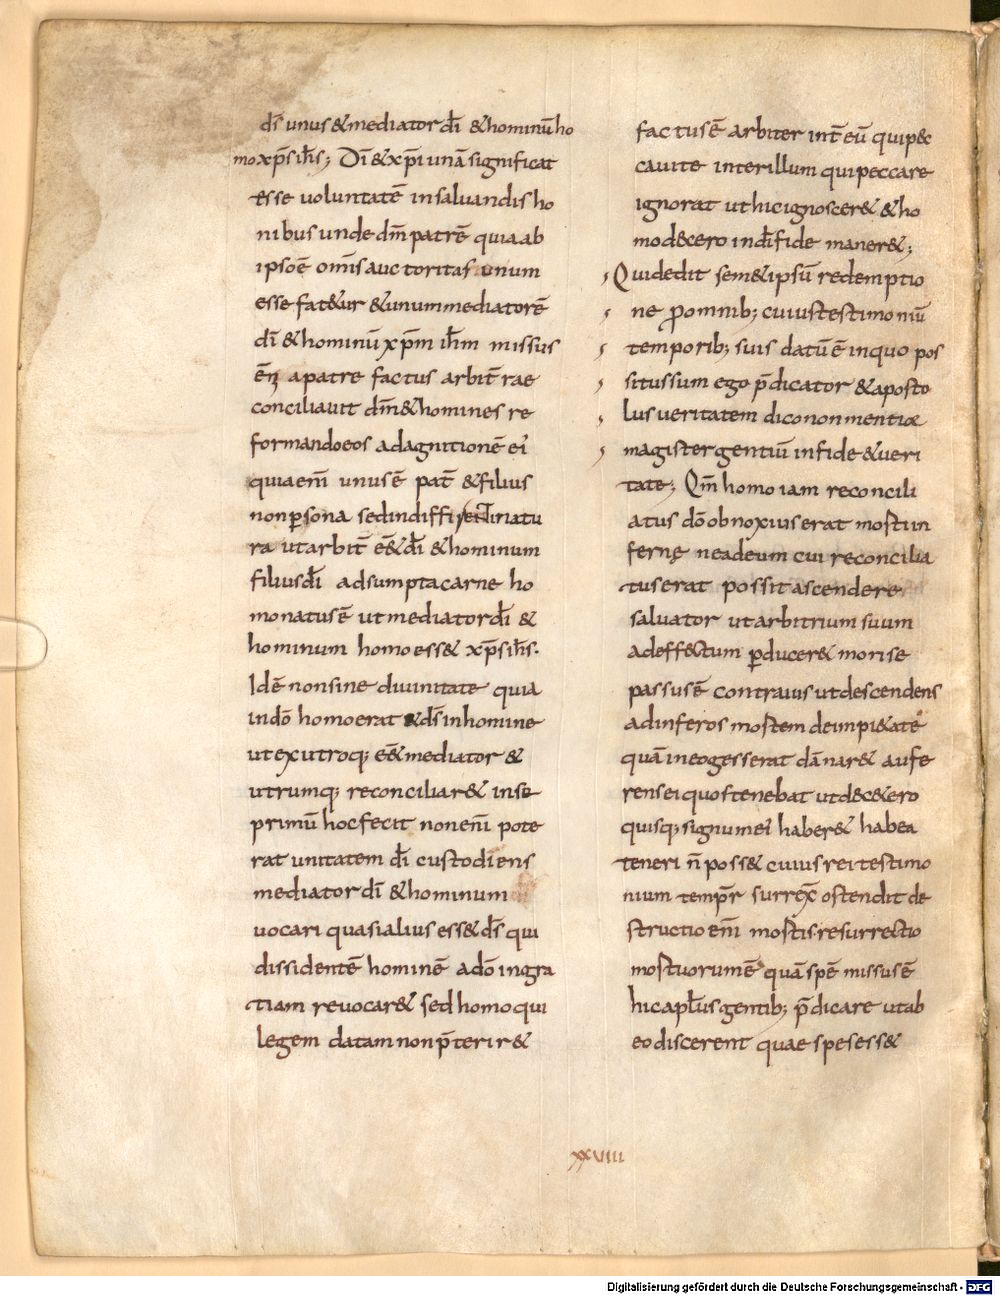 ds̄ unus & mediator dī & hominū ho
mo xp̄s ih̄s; Dī & xp̄i unā significat
esse uoluntatē in saluandis ho
nibus unde dm̄ patrē quia ab
ipso ē om̄is auctoritas unum
esse fat&ur & unum mediatorē
dī & hominū xp̄m ih̄m missus
enī a patre factus arbit̄ rae
conciliauit dm̄ & homines re
formando eos ad agnitionē ei
quia enī unus ē pat̄ & filius
non p̱sona sed indifferenti natu
ra ut arbit̄ e&̄ dī & hominum
filius dī adsumpta carne ho
mo natus ē ut mediator dī &
hominum homo ess& xp̄s ih̄s.
Idē non sine diuinitate quia
in dō homo erat & ds̄ in homine
ut ex utroq; e&̄ mediator &
utrumq; reconciliar& in se
primū hoc fecit non enī pote
rat unitatem dī custodiens
mediator dī & hominum
uocari quasi alius ess& ds̄ qui
dissidentē hominē a dō in gra
tiam reuocar& sed homo qui
legem datam non p̄terir&
factus ē arbiter int̄ eū qui pec
cauit & inter illum qui peccare
ignorat ut hic ignoscer& & ho
mo d&cero in dī fide maner&;
Qui dedit sem&ipsū redemptio
ne pro omnib; cuius testimoniū
temporib; suis datū ē in quo pos
situs sum ego p̄dicator & aposto
lus ueritatem dico non mentior
magister gentiū in fide & ueri
tate; Qm̄ homo iam reconcili
atus dō obnoxius erat morti in
fernę ne ad eum cui reconcilia
tus erat possit ascendere
saluator ut arbitrium suum
ad eff&ctum p̱ducer& mori se
passus ē contra ius ut descendens
ad inferos mortem de impi&ate
quā in eo gesserat dānar& aufe
rens ei quos tenebat ut d&c&ero
quisq; signum eī haber& habea
teneri n̄ poss& cuius rei testimo
nium temp̄r surrex̄ ostendit de
structio enī mortis resurrectio
mortuorum ē quā spē missus ē
hic apl̄us gentib; p̄dicare ut ab
eo discerent quae spes ess&
xxviiii
Digitalisierung gefördert durch die Deutsche Forschungsgemeinschaft - DFG